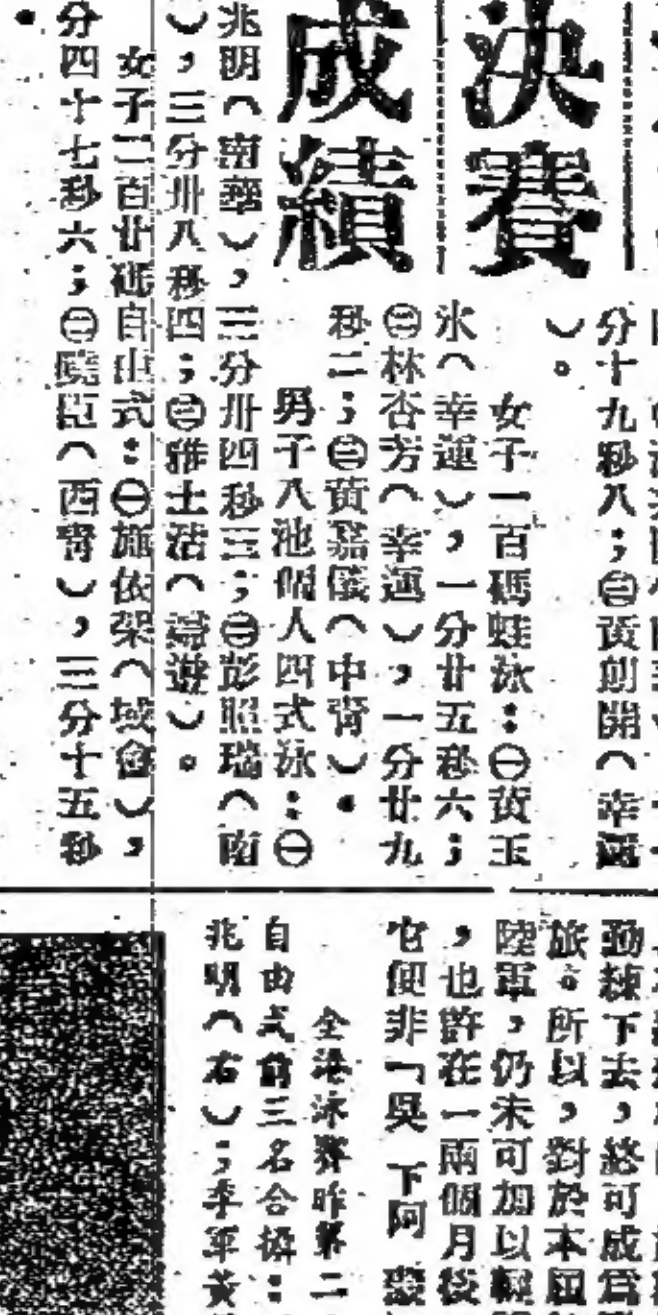 決賽
成績
分十九秒八；㊂黃創開（幸運
）。
女子一百碼蛙泳：㊀黃玉
氷（幸運），一分廿五秒六；
㊁林杏芳（幸運），一分廿九
秒二；㊂黃嘉儀（中青）。
男子八池個人四式泳：㊀
兆明（南華），三分卅四秒三；㊁彭照瑞（南
），三分卅八秒四；㊂雅士沽（游）。
女子二百廿碼自由式：㊀施依架（域會），
分四十七秒六；㊁臣（西青），三分十五秒
。
勤練下去，終可成爲
旅。所以，對於本屆
陸軍，仍未可加以輕
，也許在一兩個月後
它便非「吳下阿
全港泳賽昨第二
自由式前三名合攝：
兆明（右）；季軍黃